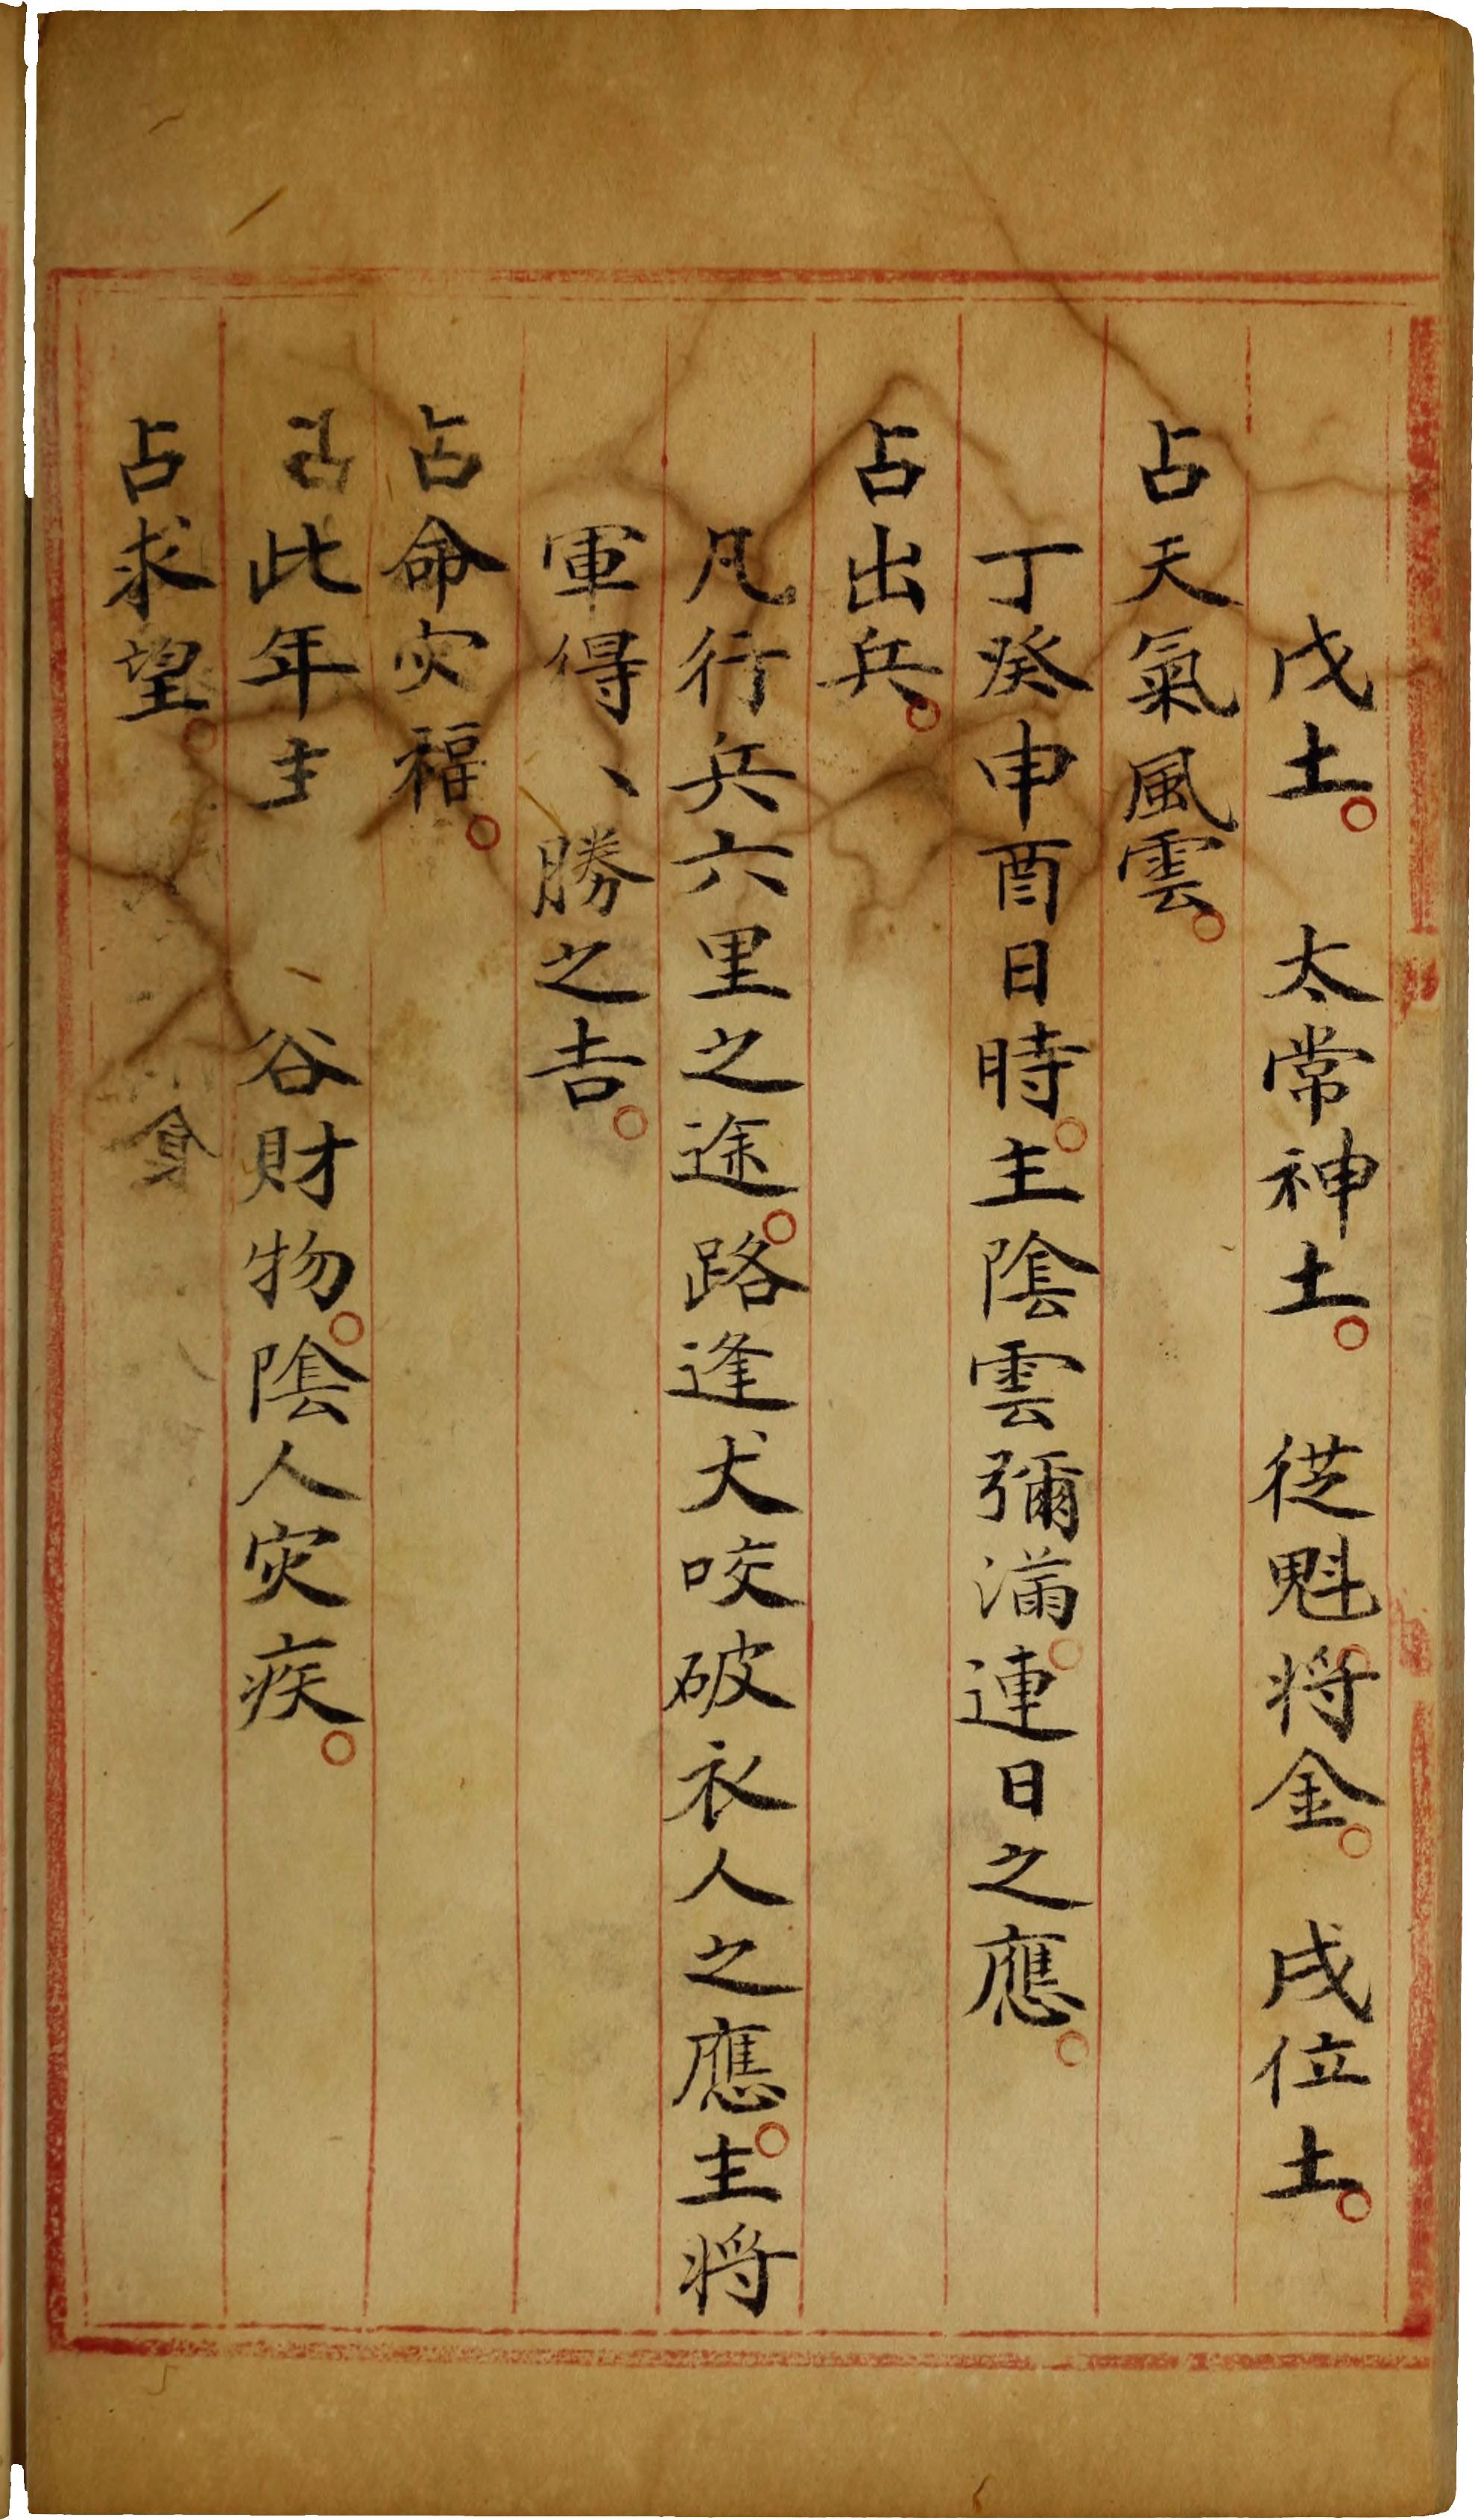 戊土。 太常神土。 從魁將金。 戌位土。
占天氣風雲。
丁癸申酉日時。主陰雲彌滿。連日之應。
占出兵。
凡行兵六里之途。路逢犬咬破衣人之應。主将
軍得、勝之吉。
占命灾福。
占此年主 谷財物。陰人灾疾。
占求望。